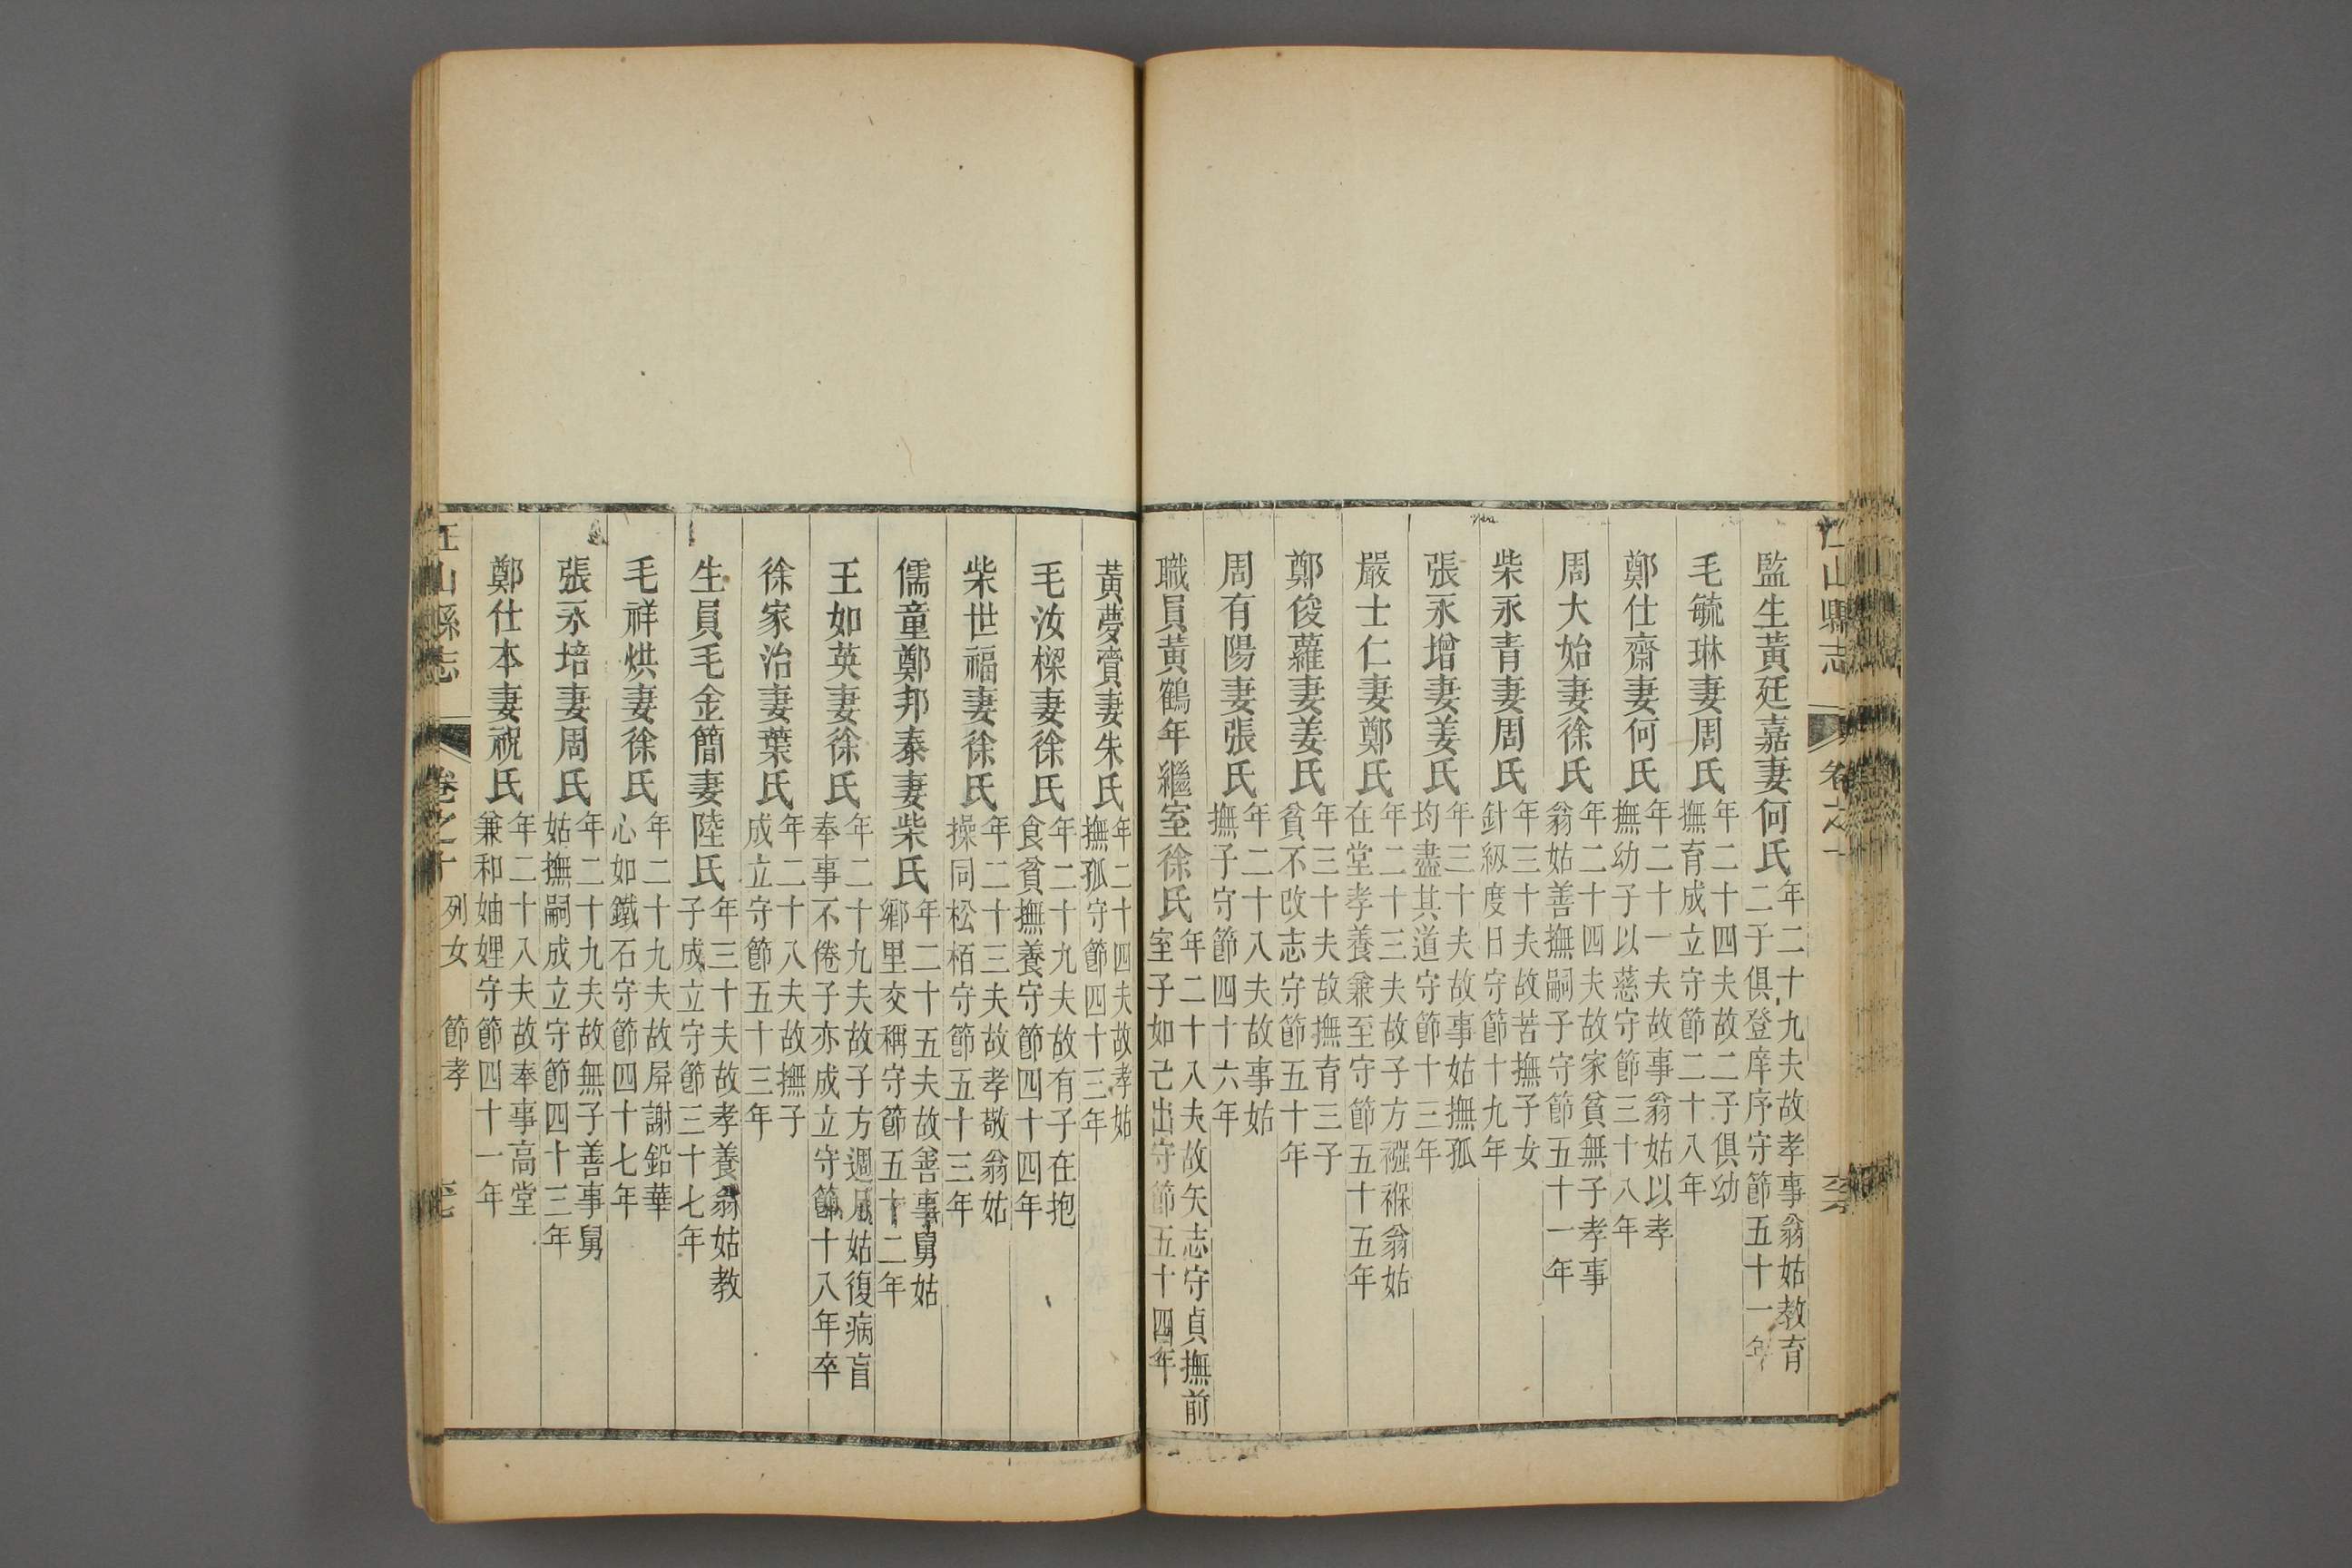 江山縣志 卷之十
監生黃廷嘉妻何氏年二十九夫故孝事翁姑教育二子俱登庠序守節五十一年
毛毓琳妻周氏年二十四夫故二子俱幼撫育成立守節二十八年
鄭仕齋妻何氏年二十一夫故事翁姑以孝撫幼子以慈守節三十八年
周大始妻徐氏年二十四夫故家貧無子孝事翁姑善撫嗣子守節五十一年
柴永青妻周氏年三十夫故苦撫子女針紉度日守節十九年
張永增妻姜氏年三十夫故事姑撫孤均盡其道守節十三年
嚴士仁妻鄭氏年二十三夫故子方襁褓翁姑在堂孝養兼至守節五十五年
鄭俊蘿妻姜氏年三十夫故撫育三子貧不改志守節五十年
周有陽妻張氏年二十八夫故事姑撫子守節四十六年
職員黃鶴年繼室徐氏年二十八夫故矢志守貞撫前室子如己出守節五十四年
黃夢賚妻朱氏年二十四夫故孝姑撫孤守節四十三年
毛汝樑妻徐氏年二十九夫故有子在抱食貧撫養守節四十四年
柴世福妻徐氏年二十三夫故孝敬翁姑操同松栢守節五十三年
儒童鄭邦泰妻柴氏年二十五夫故善事舅姑鄉里交稱守節五十二年
王如英妻徐氏年二十九夫故子方週月姑復病盲奉事不倦子亦成立守節十八年卒
徐家治妻葉氏年二十八夫故撫子成立守節五十三年
生員毛金簡妻陸氏年三十夫故孝養翁姑教子成立守節三十七年
毛祥烘妻徐氏年二十九夫故屏謝鉛華心如鐵石守節四十七年
張永培妻周氏年二十九夫故無子善事舅姑撫嗣成立守節四十三年
鄭仕本妻祝氏年二十八夫故奉事高堂兼和妯娌守節四十一年
江山縣志 卷之十 列女 節孝